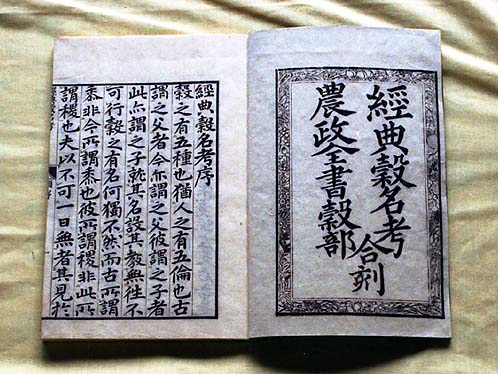 經典穀名考
農政全書穀部
合刻
經典穀名考序
穀之有五種也猶人之有五倫也古
謂之父者今亦謂之父彼謂之子者
此亦謂之子就其名設其教無徃不
可行穀之有名何獨不然而古所謂
黍非今所謂黍也彼所謂稷非此所
謂稷也夫以不可一日無者其見於